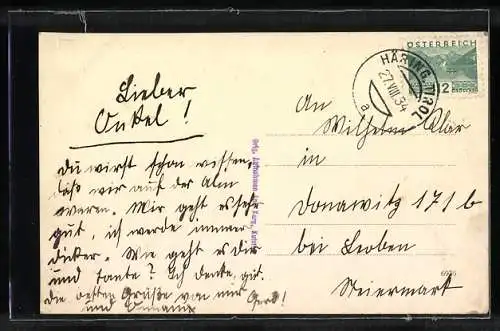 Lieber
Onkel!
Du wirst schon wissen,
daß wir auf der Alm
waren. Mir geht es sehr
gut, ich werde immer
dicker. Wie geht es dir
und Tante? Ich denke, gut.
Die besten Grüße von mir Gerd!
und
ÖSTERREICH
2
HÄRING-TIROL
27.VIII.34
a
An
Wilhelm Klär
in
Donawitz 171 b
bei Leoben
Steiermark
6936